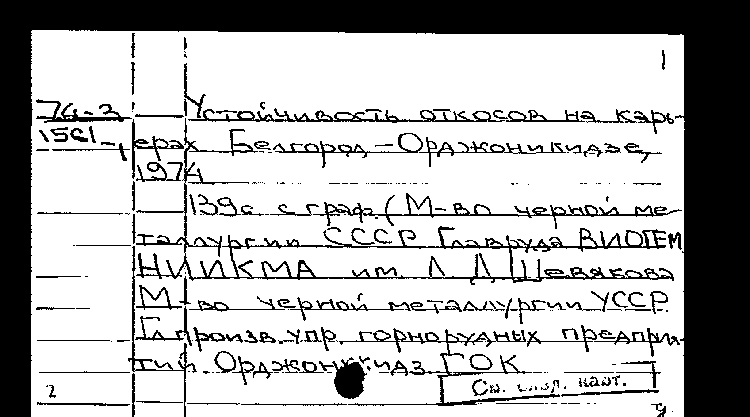 1
74-3
1561-1
Устойчивость откосов на карь-
ерах Белгород-Орджоникидзе,
1974
139с с граф. (М-во черной ме-
таллургии СССР Главруда ВИОГЕМ
НИИКМА им. Л Д Шевякова
М-во черной металлургии УССР.
Гл произв. упр. горнорудных предприя-
тий. Орджоникидз. ГОК
См. след. карт.
2